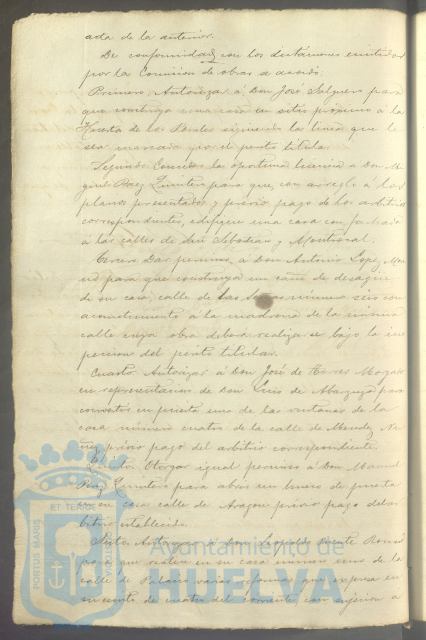 ada de la anterior.
De conformidad con los dictámenes emitidos
por la Comision de obras se acordó:
Primero Autorizar á Don José Salguero para
que construya una casa en sitio próximo á la
Huerta de los siguiendo la linea que le
sea marcada por el perito titular.
Segundo Conceder la oportuna licencia a Don Mi
guel Baez Quintero para que, con arreglo á los
planos presentados y prévio pago de los arbitrios
correspondientes, edifique una casa con fachada
á las calles de San Sebastian y Montrocal.
Tercero Dar permiso á Don Antonio Lopez
para que construya un caño de desagüe
de su casa, calle de las número seis con
acometimiento á la madrona de la misma
calle cuya obra deberá realizarse bajo la ins
peccion del perito titular.
Cuarto Autorizar á Don José de
en representacion de Don Luis de para
convertir en puerta una de las ventanas de la
casa número cuatro de la calle de Mendez Nu
ñez, prévio pago del arbitrio correspondiente.
Quinto Otorgar igual permiso á Don Manuel
Baez Quintero para abrir un hueco de puerta
en su casa calle de Aragon prévio pago del ar
bitrio establecido.
Sexto Autorizar á Don Leopoldo
para que realice en su casa número uno de la
calle de Palacio varias reformas que expresa en
su escrito de cuatro del corriente, con sujecion a
PORTUS MARIS ET TERRÆ CUSTODIA
Ayuntamiento de
HUELVA